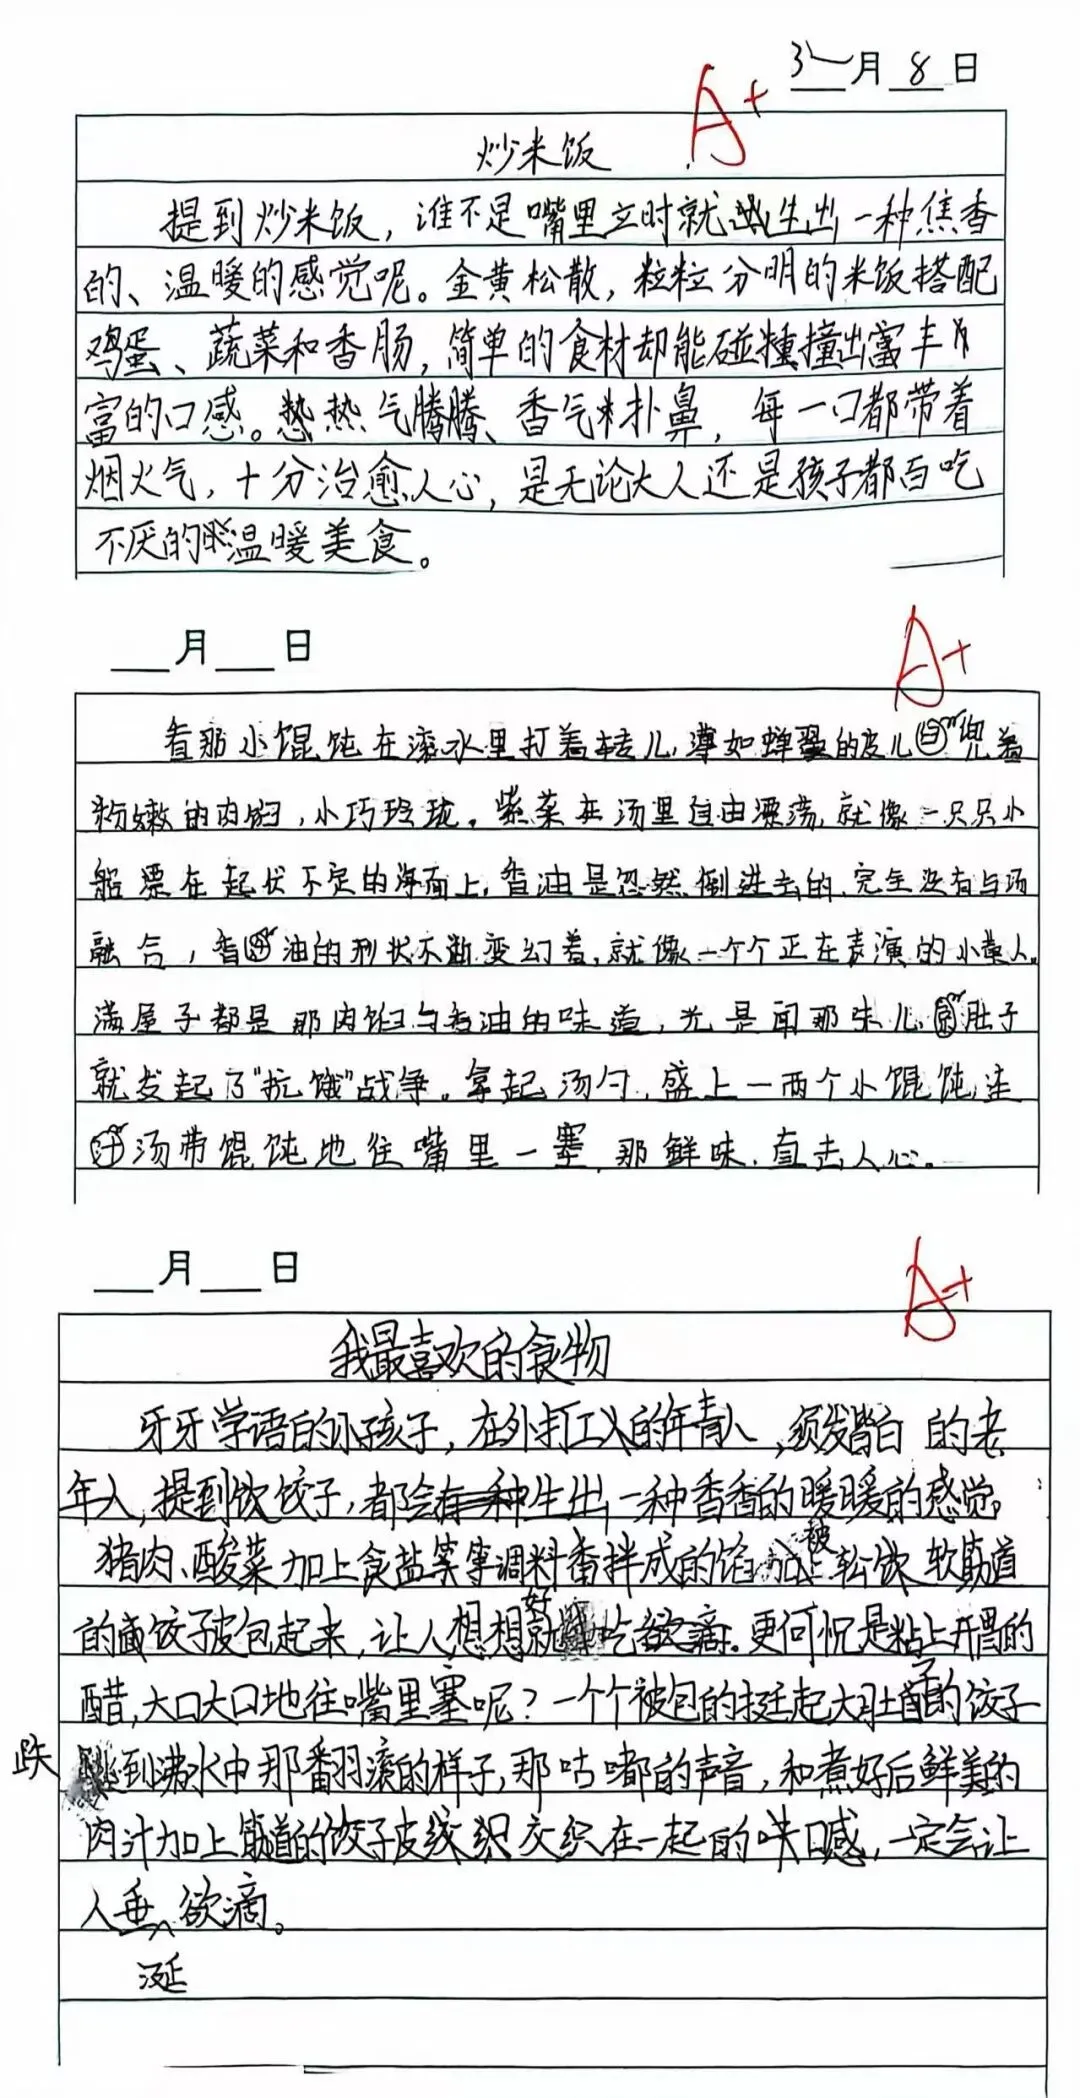 3月8日
A+
炒米饭
提到炒米饭，谁不是嘴里立时就生出一种焦香
的、温暖的感觉呢。金黄松散，粒粒分明的米饭搭配
鸡蛋、蔬菜和香肠，简单的食材却能碰撞出富丰
富的口感。热气腾腾、香气扑鼻，每一口都带着
烟火气，十分治愈人心，是无论大人还是孩子都百吃
不厌的温暖美食。
月 日
A+
看那小馄饨在滚水里打着转儿，薄如蝉翼的皮儿兜着
粉嫩的肉馅，小巧玲珑。紫菜在汤里自由漂荡，就像一只只小
船票在起伏不定的海面上，香油是忽然倒进去的，完全没有与汤
融合，香油的形状不断变幻着，就像一个个正在表演的小黄人。
满屋子都是那肉馅与香油的味道，光是闻那味儿肚子
就发起了"抗饿"战争。拿起汤勺，盛上一两个小馄饨，连
汤带馄饨地往嘴里一塞，那鲜味，直击人心。
月 日
A+
我最喜欢的食物
牙牙学语的小孩子，在外打工的年青人，须发皆白的老
年人，提到饺子，都会生出一种香香的暖暖的感觉。
猪肉、酸菜加上食盐等等调料拌成的馅被松软筋道
的饺子皮包起来，让人想想就好吃欲滴。更何况是粘上开胃的
醋，大口大口地往嘴里塞呢？一个个被包的挺起大肚子的饺子
跌到沸水中那番翻滚的样子，那咕嘟的声音，和煮好后鲜美的
肉汁加上筋道的饺子皮交织在一起的口感，一定会让
人垂涎欲滴。